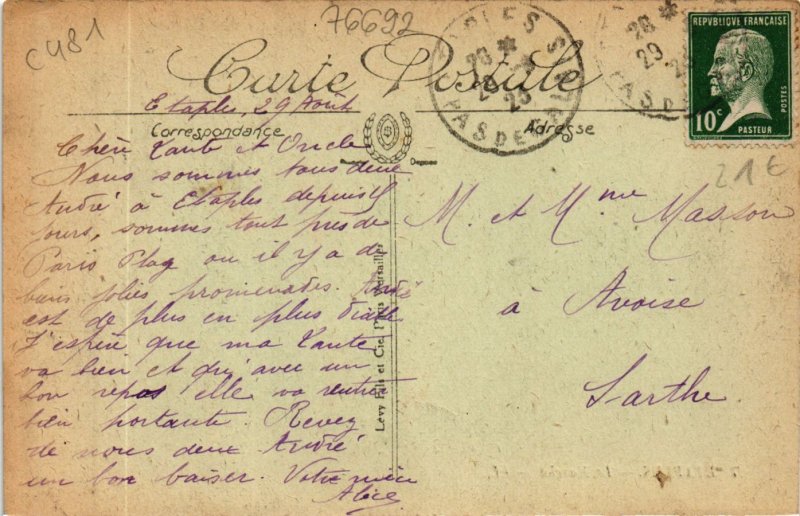 76692
C481
Carte Postale
REPUBLIQUE FRANÇAISE
10c
POSTES
PASTEUR
28 *
29
Etaples, 29 Août
Correspondance
Adresse
21€
Chère Tante et Oncle
Nous sommes tous deux
André à Etaples depuis 8
jours, sommes tout près de
Paris Plag ou il y a de
bien jolies promenades. André
est de plus en plus diable
J'espère que ma Tante
va bien et qu'avec un
bon repos elle va rentrer
bien portante. Recevez
de nous deux André
un bon baiser. Votre nièce
Alice
Levy Fils et Cie, Paris Versailles
M. et Mme Masson
à Avoise
Sarthe.